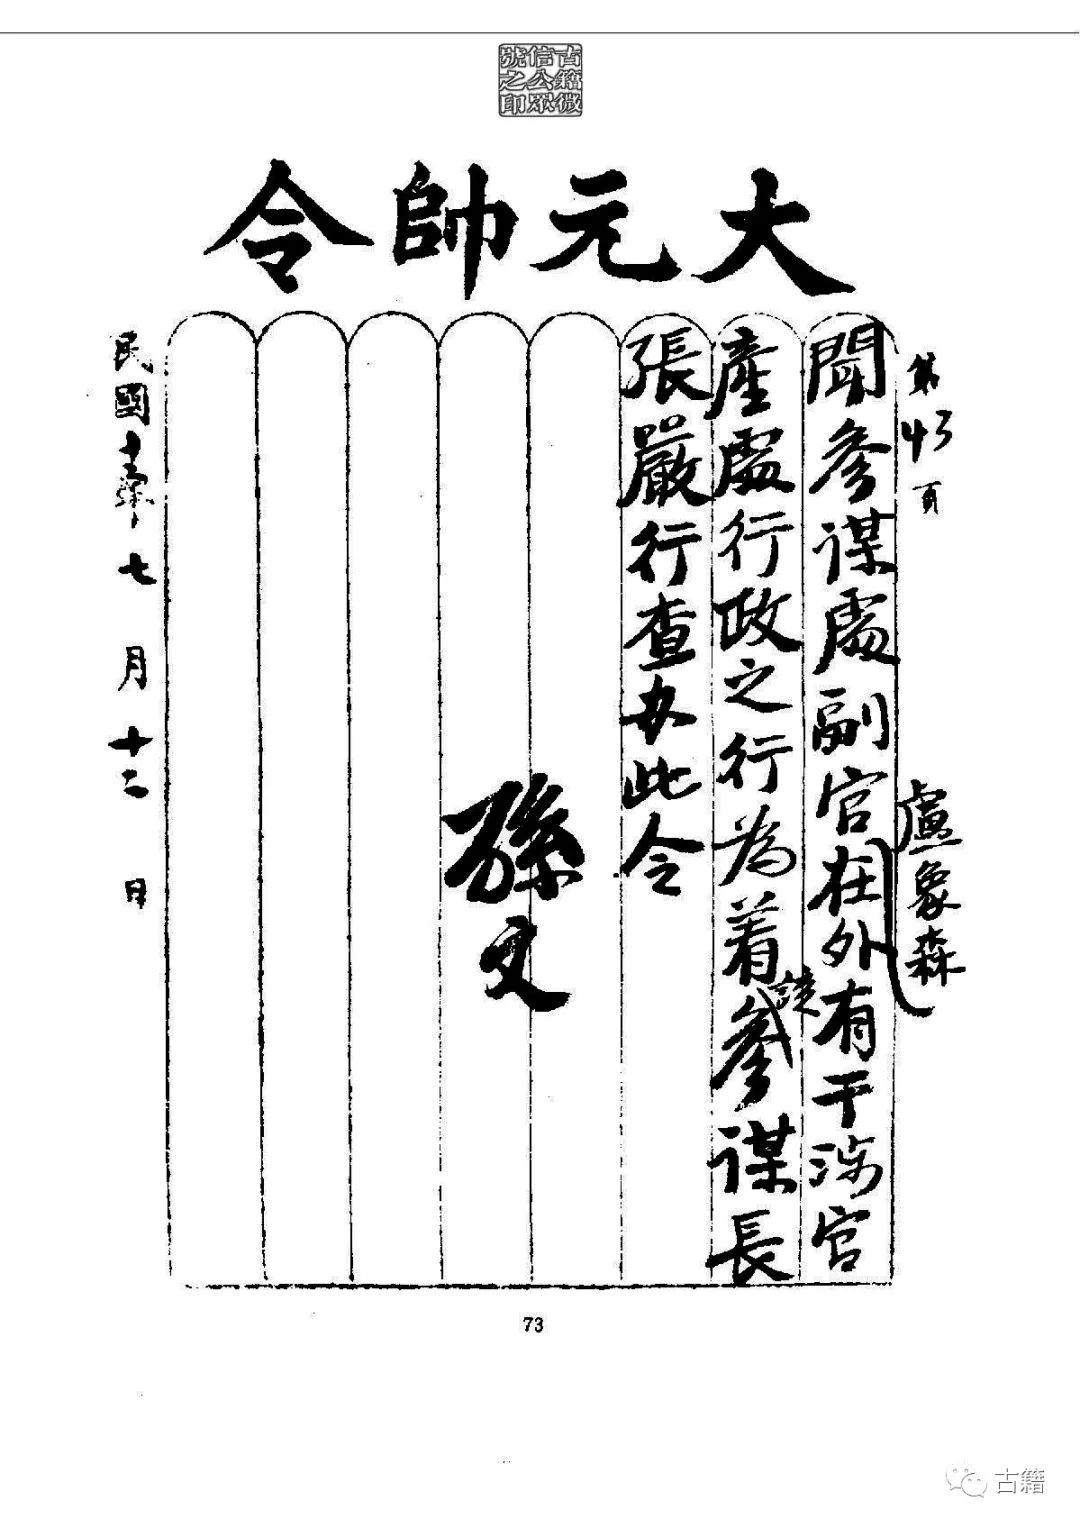 古籍微
信公眾
號之印
大元帥令
第43頁
盧象森
聞參謀處副官在外有干涉官
該
產處行政之行為着參謀長
張嚴行查办此令
孫文
民國十二年七月十二日
73
古籍